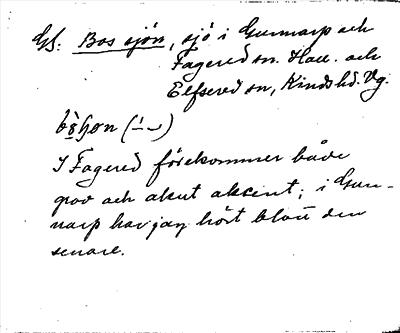 Gf. Bos sjön, sjö i Gunnarp och
Fagered sn. Hall. och
Elfsered sn, Kinds hd. Vg.
(–́ ⏑)
I Fagered förekommer både
grav och akut aksent; i Gun-
narp har jag hört blott den
senare.